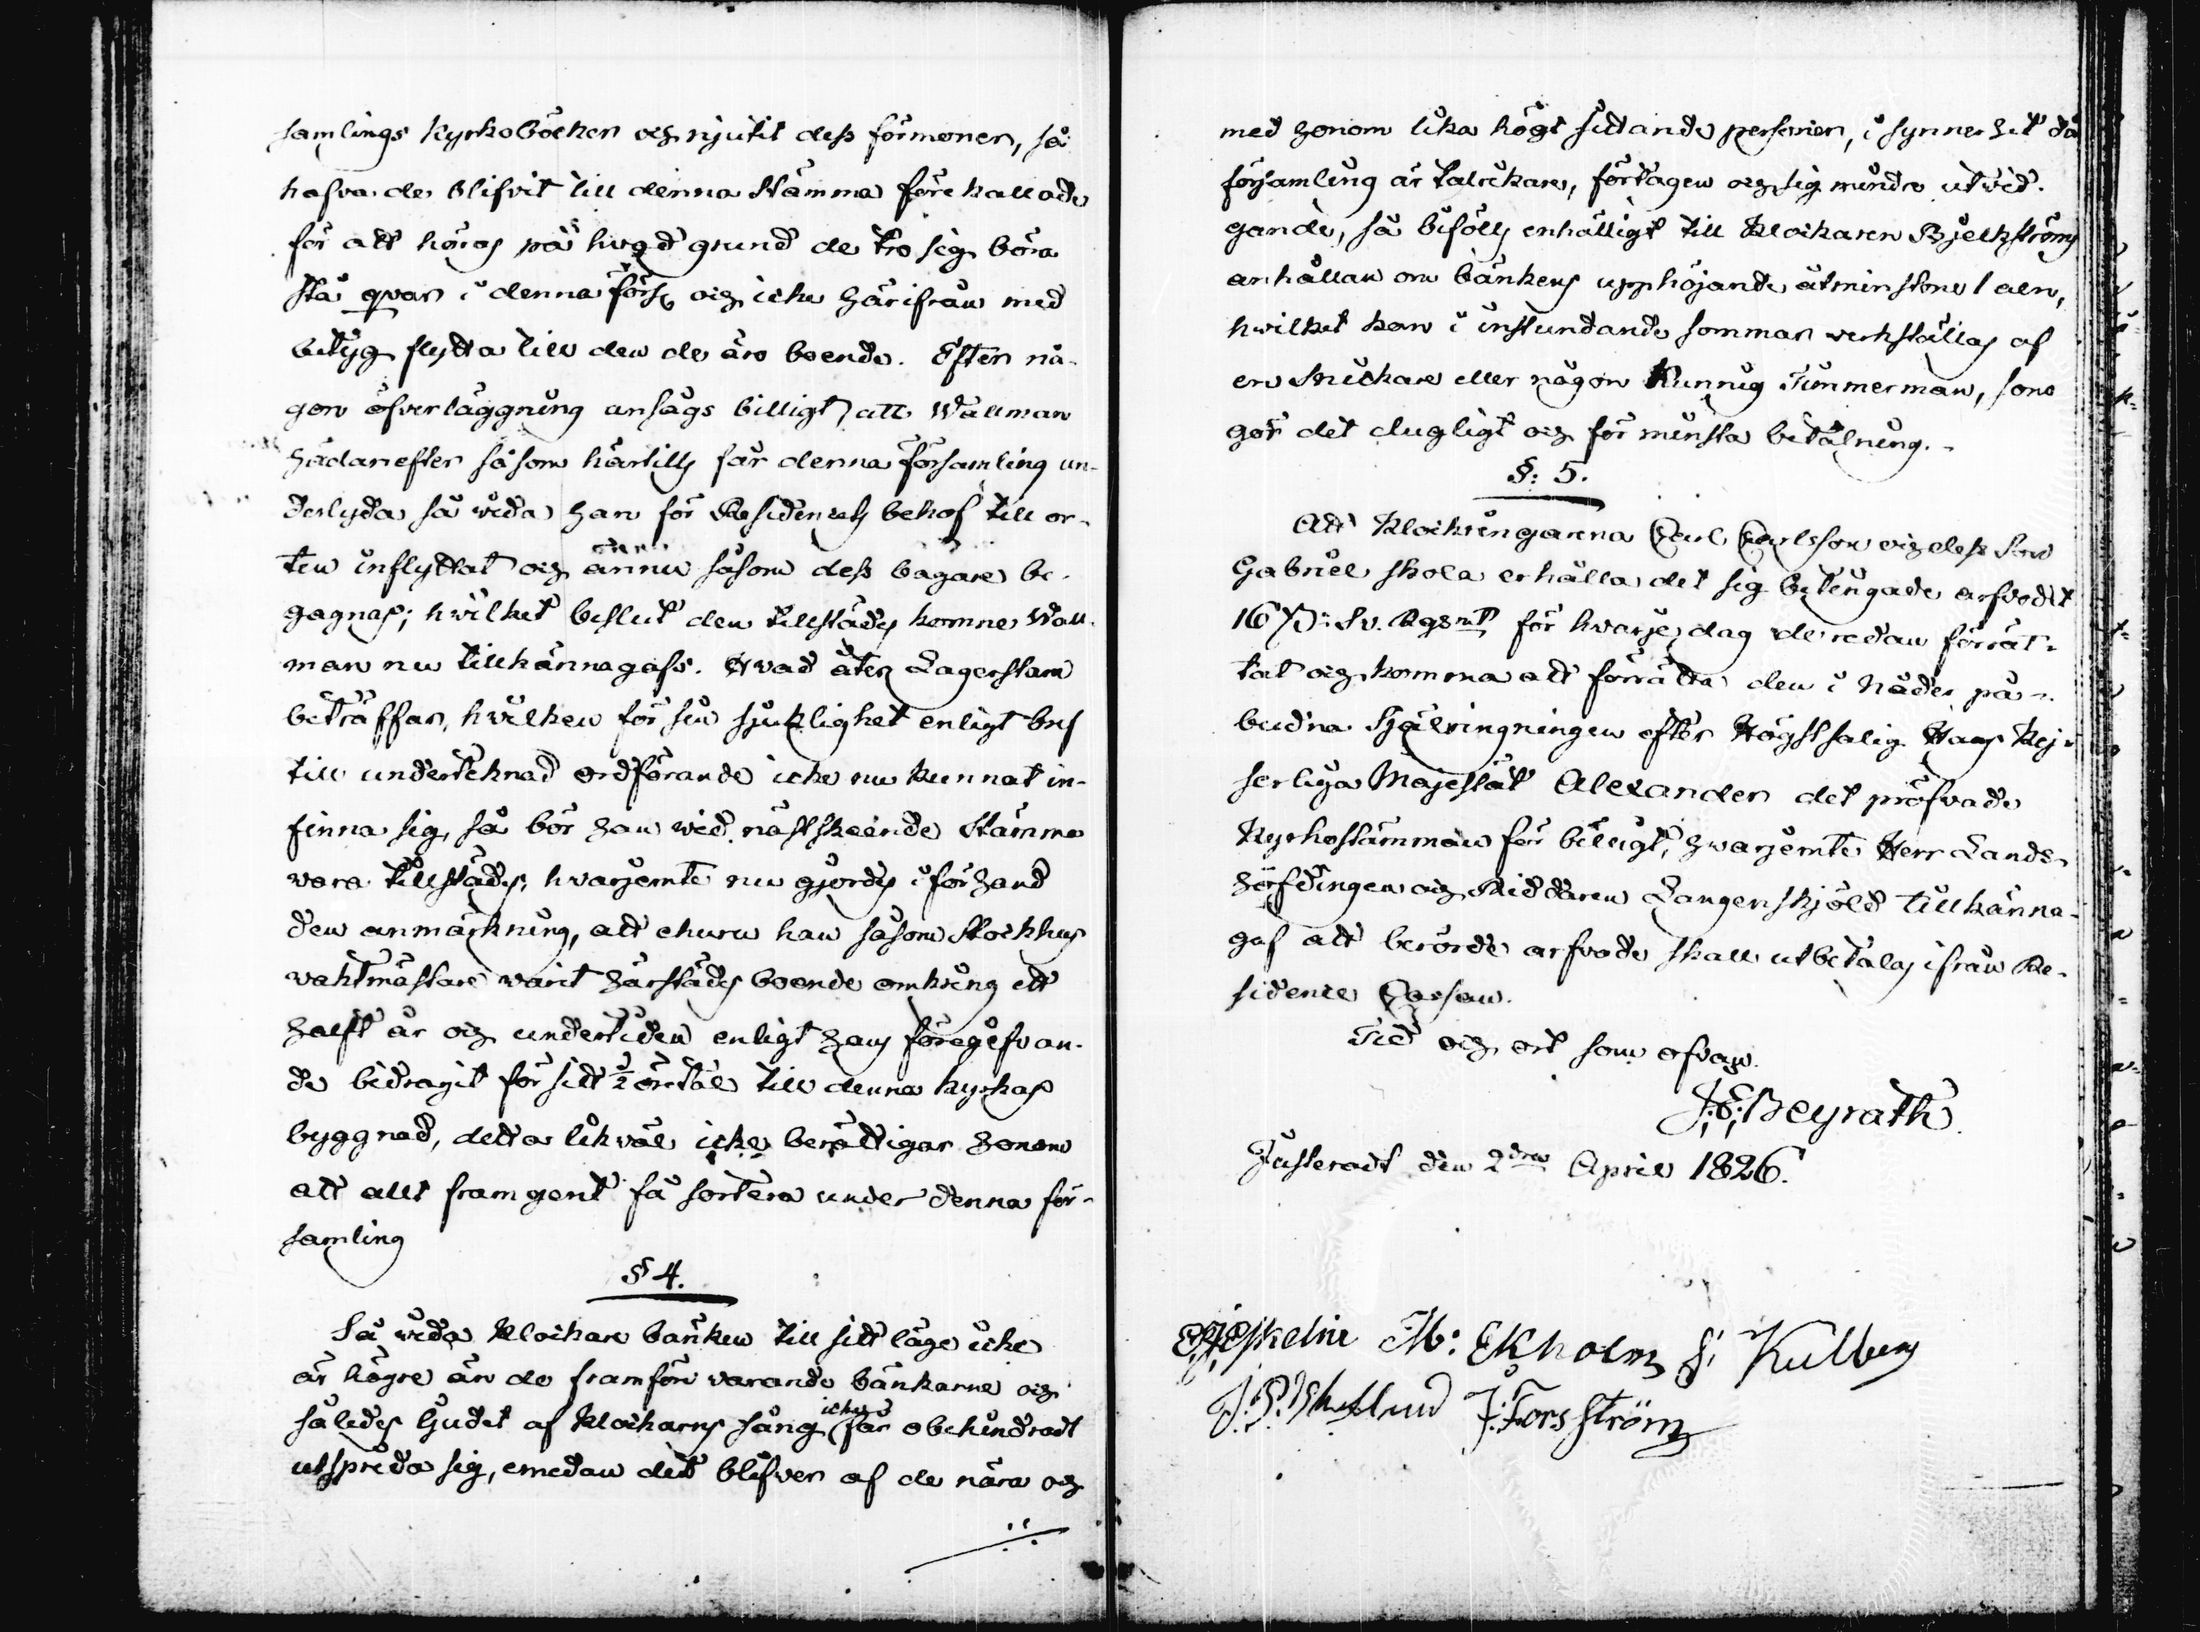 samlings Kyrkoböcker och njutit dess förmoner, så
hafva de blifvit till denna Stämma före kallade
för att höras på hvad grund de tro sig böra
stå qvar i denna förs. och icke härifrån med
betyg flytta till den de äro boende. Efter nå-
gon öfverläggning ansågs billigt, att Wallman
hädanefter såsom härtills får denna församling un-
derlyda så vida han för Residencets behof till or-
ten inflyttat och ännu såsom dess bagare be-
gagnas; hvilket beslut den tillstädes komne Wall-
man nu tillkännagafs. Hvad åter Lagerstam
beträffar, hvilken för sin sjuklighet enligt bref
till undertecknad ordförande icke nu kunnat in-
finna sig, så bör han wid nästskeende Stämma
vara tillstädes, hvarjemte nu gjordes i förhand
den anmärkning, att ehuru han såsom Stockhus
vaktmästare varit härstädes boende omkring ett
halft år och undertiden enligt hans föregifvan-
de bidragit för sitt ½ öretal till denna kyrkas
byggnad, detta likväl icke berättigar honom
att allt framgent få sortera under denna för-
samling
§ 4.
Så vida Klockare bänken till sitt läge icke
är högre än de framför varande bänkarne och
således ljudet af Klockarns sång icke får obehindradt
utsprida sig, emedan det blifver af de nära och
med honom lika högt sittande personer, i synnerhet då
församling är talrikare, förtagen och sig mindre utvid-
gande, så bifölls enhälligt till Klockaren Bjelkströms
anhållan om bänkens upphöjande åtminstone 1 aln,
hvilket kan i instundande sommar verkställas af
en Snickare eller någon Kunnig Timmerman, som
gör det dugligt och för minsta betalning.
§: 5.
Att Klockringarena Carl Carlsson och dess Son
Gabriel skola erhålla det sig betingade arfvodet
16 ß: Sv. Rgsmt för hvarje dag de redan förrät-
tat och komma att förrätta den i Nåder på-
budna Sjelringningen efter Högstsalig Hans Kej-
serliga Majestät Alexander det pröfvade
Kyrkostämman för billigt, hvarjemte Herr Lands-
höfdingen och Riddaren Langenskjöld tillkänna-
gaf att berörde arfvode skall utbetalas ifrån Re-
sidence Cassan.
Tid och ort som ofvan.
J: E: Beyrath.
Justeradt den 2dra April 1826.
M: Ekholm S: Kulberg
J: Forsström